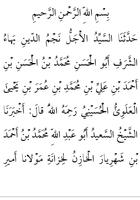 بِسْمِ اللهِ الرَّحْمنِ الرَّحيمِ
حَدَّثَنَا السَّيِّدُ الْأَجَلُّ نَجْمُ الدّينِ بَهاءُ
الشَّرَفِ أَبُو الْحَسَنِ مُحَمَّدُ بْنُ الْحَسَنِ بْنِ
أَحْمَدَ بْنِ عَلِيِّ بْنِ مُحَمَّدِ بْنِ عُمَرَ بْنِ يَحْيَى
الْعَلَوِيُّ الْحُسَيْنِيُّ رَحِمَهُ اللهُ قالَ: أَخْبَرَنَا
الشَّيْخُ السَّعيدُ أَبُو عَبْدِ اللهِ مُحَمَّدُ بْنُ أَحْمَدَ
بْنِ شَهْرِيارَ الْخازِنُ لِخِزانَةِ مَوْلانا أَميرِ